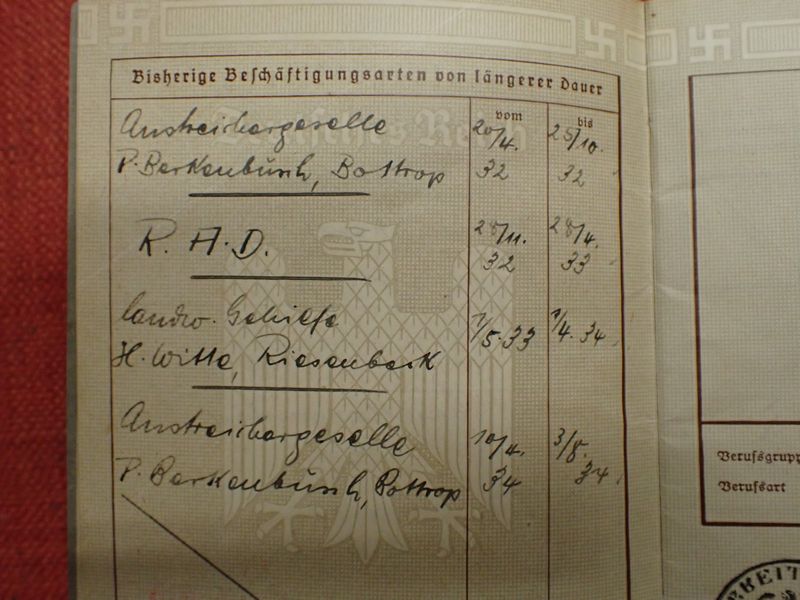 Bisherige Beschäftigungsarten von längerer Dauer
vom
bis
Anstreichergeselle
20/4.
25/10.
P. Berkenbusch, Bottrop
32
32
R.A.D.
28/11.
28/4.
32
33
landw. Gehilfe
1/5.33
1/4.34
H. Witte, Riesenbeck
Anstreichergeselle
10/4.
3/8.
P. Berkenbusch, Bottrop
34
34
Deutsches Reich
Berufsgrupp
Berufsart
RBEIT